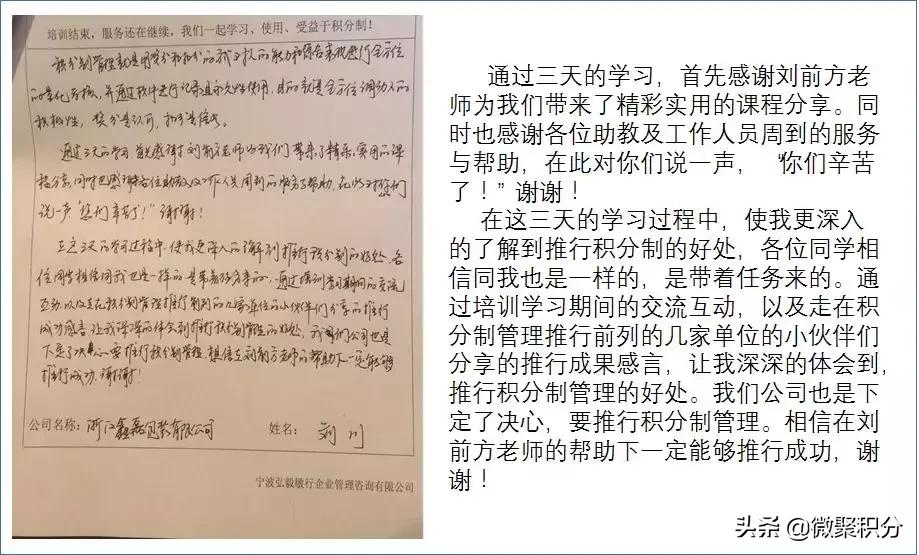 培训结束，服务还在继续，我们一起学习、使用、受益于积分制！
积分制管理就是用奖分和扣分的形式对人的能力和综合表现进行全方位
的量化考核，并通过软件进行记录且永久性使用，目的就是全方位调动人的
积极性，奖分是认可，扣分是信号。
通过三天的学习 首先感谢刘前方老师为我们带来了精采实用的课
程分享，同时也感谢各位助教及工作人员周到的服务与帮助，在此对您们
说一声"您们辛苦了！"谢谢！
在这三天的学习过程中，使我更深入的了解到推行积分制的好处，各
位同学相信同我也是一样的，是带着任务来的，通过培训学习期间的交流
互动，以及走在积分制管理推行前列的几家单位的小伙伴们分享的推行
成功感言，让我深深的体会到推行积分制管理的好处，我们公司也是
下定了决心，要推行积分制管理，相信在刘前方老师的帮助下一定能够
推行成功，谢谢！
公司名称：浙江鑫磊包装有限公司 姓名：刘川
宁波弘毅敏行企业管理咨询有限公司
通过三天的学习，首先感谢刘前方老
师为我们带来了精彩实用的课程分享。同
时也感谢各位助教及工作人员周到的服务
与帮助，在此对你们说一声，“你们辛苦
了！”谢谢！
在这三天的学习过程中，使我更深入
的了解到推行积分制的好处，各位同学相
信同我也是一样的，是带着任务来的。通
过培训学习期间的交流互动，以及走在积
分制管理推行前列的几家单位的小伙伴们
分享的推行成果感言，让我深深的体会到，
推行积分制管理的好处。我们公司也是下
定了决心，要推行积分制管理。相信在刘
前方老师的帮助下一定能够推行成功，谢
谢！
头条 @微聚积分